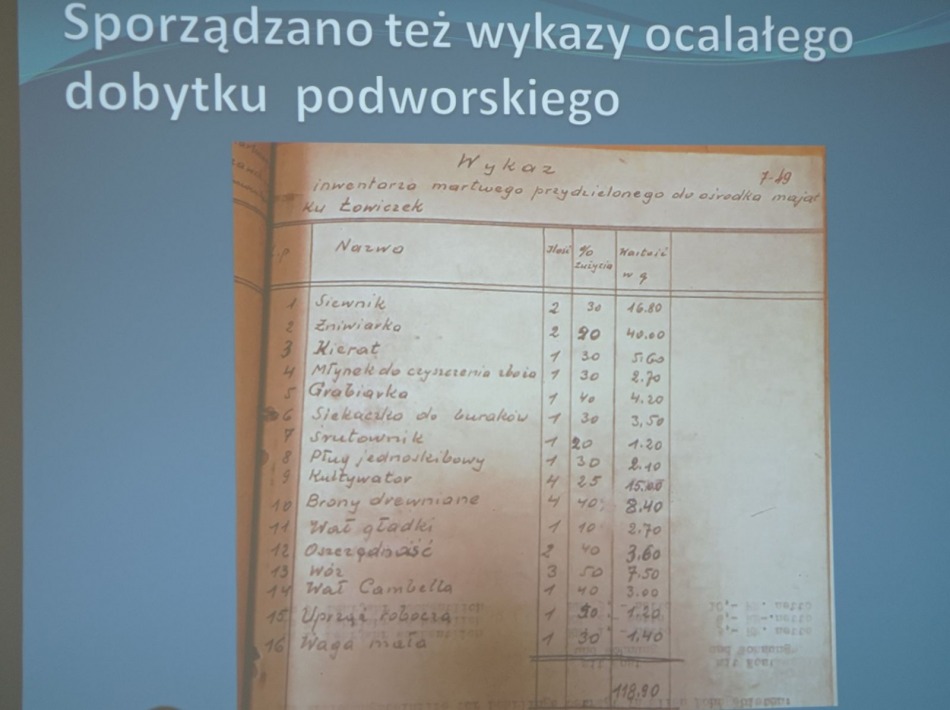 Sporządzano też wykazy ocalałego
dobytku podworskiego
Wykaz
7-49
inwentarza martwego przydzielonego do ośrodka mająt
ku Łowiczek
L.p Nazwa Ilość % zużycia Wartość w q
1 Siewnik 2 30 16.80
2 Żniwiarka 2 20 40.00
3 Kierat 1 30 5.60
4 Młynek do czyszczenia zboża 1 30 2.70
5 Grabiarka 1 40 4.20
6 Siekaczka do buraków 1 30 3,50
7 Śrutownik 1 20 1.20
8 Pług jednoskibowy 1 30 2.10
9 Kultywator 4 25 15.00
10 Brony drewniane 4 40 8.40
11 Wał gładki 1 10 2.70
12 2 40 3.60
13 Wóz 3 50 7.50
14 Wał Cambella 1 40 3.00
15 Uprząż robocza 1 1.20
16 Waga mała 1 30 1.40
118.90